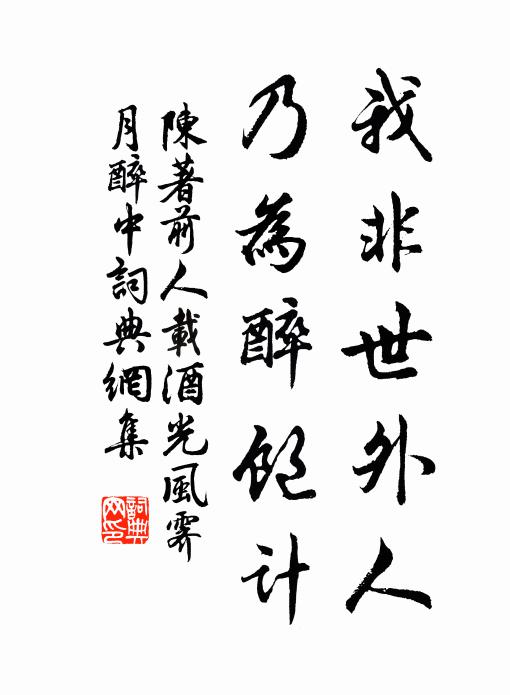 我非世外人
乃為醉飽計
陳著前人載酒光風霽
月醉中詞典網集
詞典網印